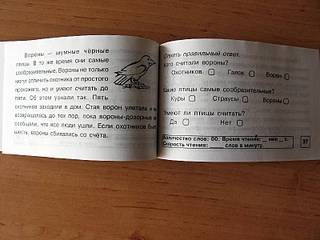 Вороны — шумные чёрные
птицы. В то же время они самые
сообразительные. Вороны не только
могут отличить охотников от простого
прохожего, но и умеют считать до
пяти. Об этом узнали так. Пять
охотников заходили в дом. Стая ворон улетала и не
возвращалась до тех пор, пока вороны-дозорные не
сообщали, что все люди ушли. Если охотников было
шесть, вороны сбивались со счёта.
Отметь правильный ответ.
Кого считали вороны?
Охотников Галок Ворон
Какие птицы самые сообразительные?
Куры Страусы Вороны
Умеют ли птицы считать?
Да Нет
Количество слов: 60. Время чтения: мин с.
Скорость чтения: слов в минуту.
37